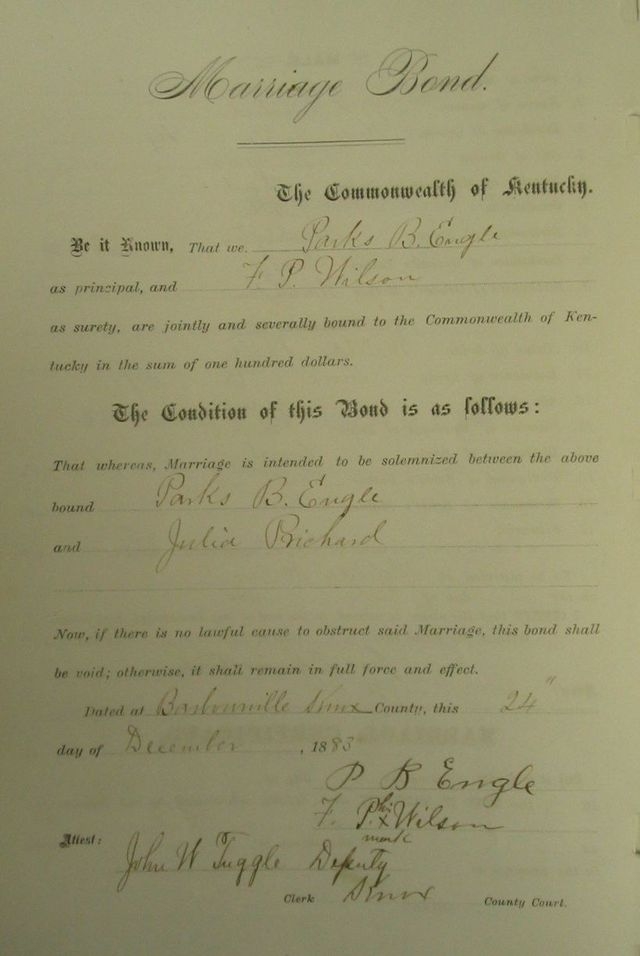 Marriage Bond.
The Commonwealth of Kentucky.
Be it Known, That we. Parks B. Engle
as principal, and F. P. Wilson
as surety, are jointly and severally bound to the Commonwealth of Ken-
tucky in the sum of one hundred dollars.
The Condition of this Bond is as follows:
That whereas, Marriage is intended to be solemnized between the above
bound Parks B. Engle
and Julia Prichard
Now, if there is no lawful cause to obstruct said Marriage, this bond shall
be void; otherwise, it shall remain in full force and effect.
Dated at Barbourville Knox County, this 24"
day of December, 1883
P B Engle
F. P. his x Wilson
mark
Attest: John W Tuggle Deputy
Clerk Knox County Court.